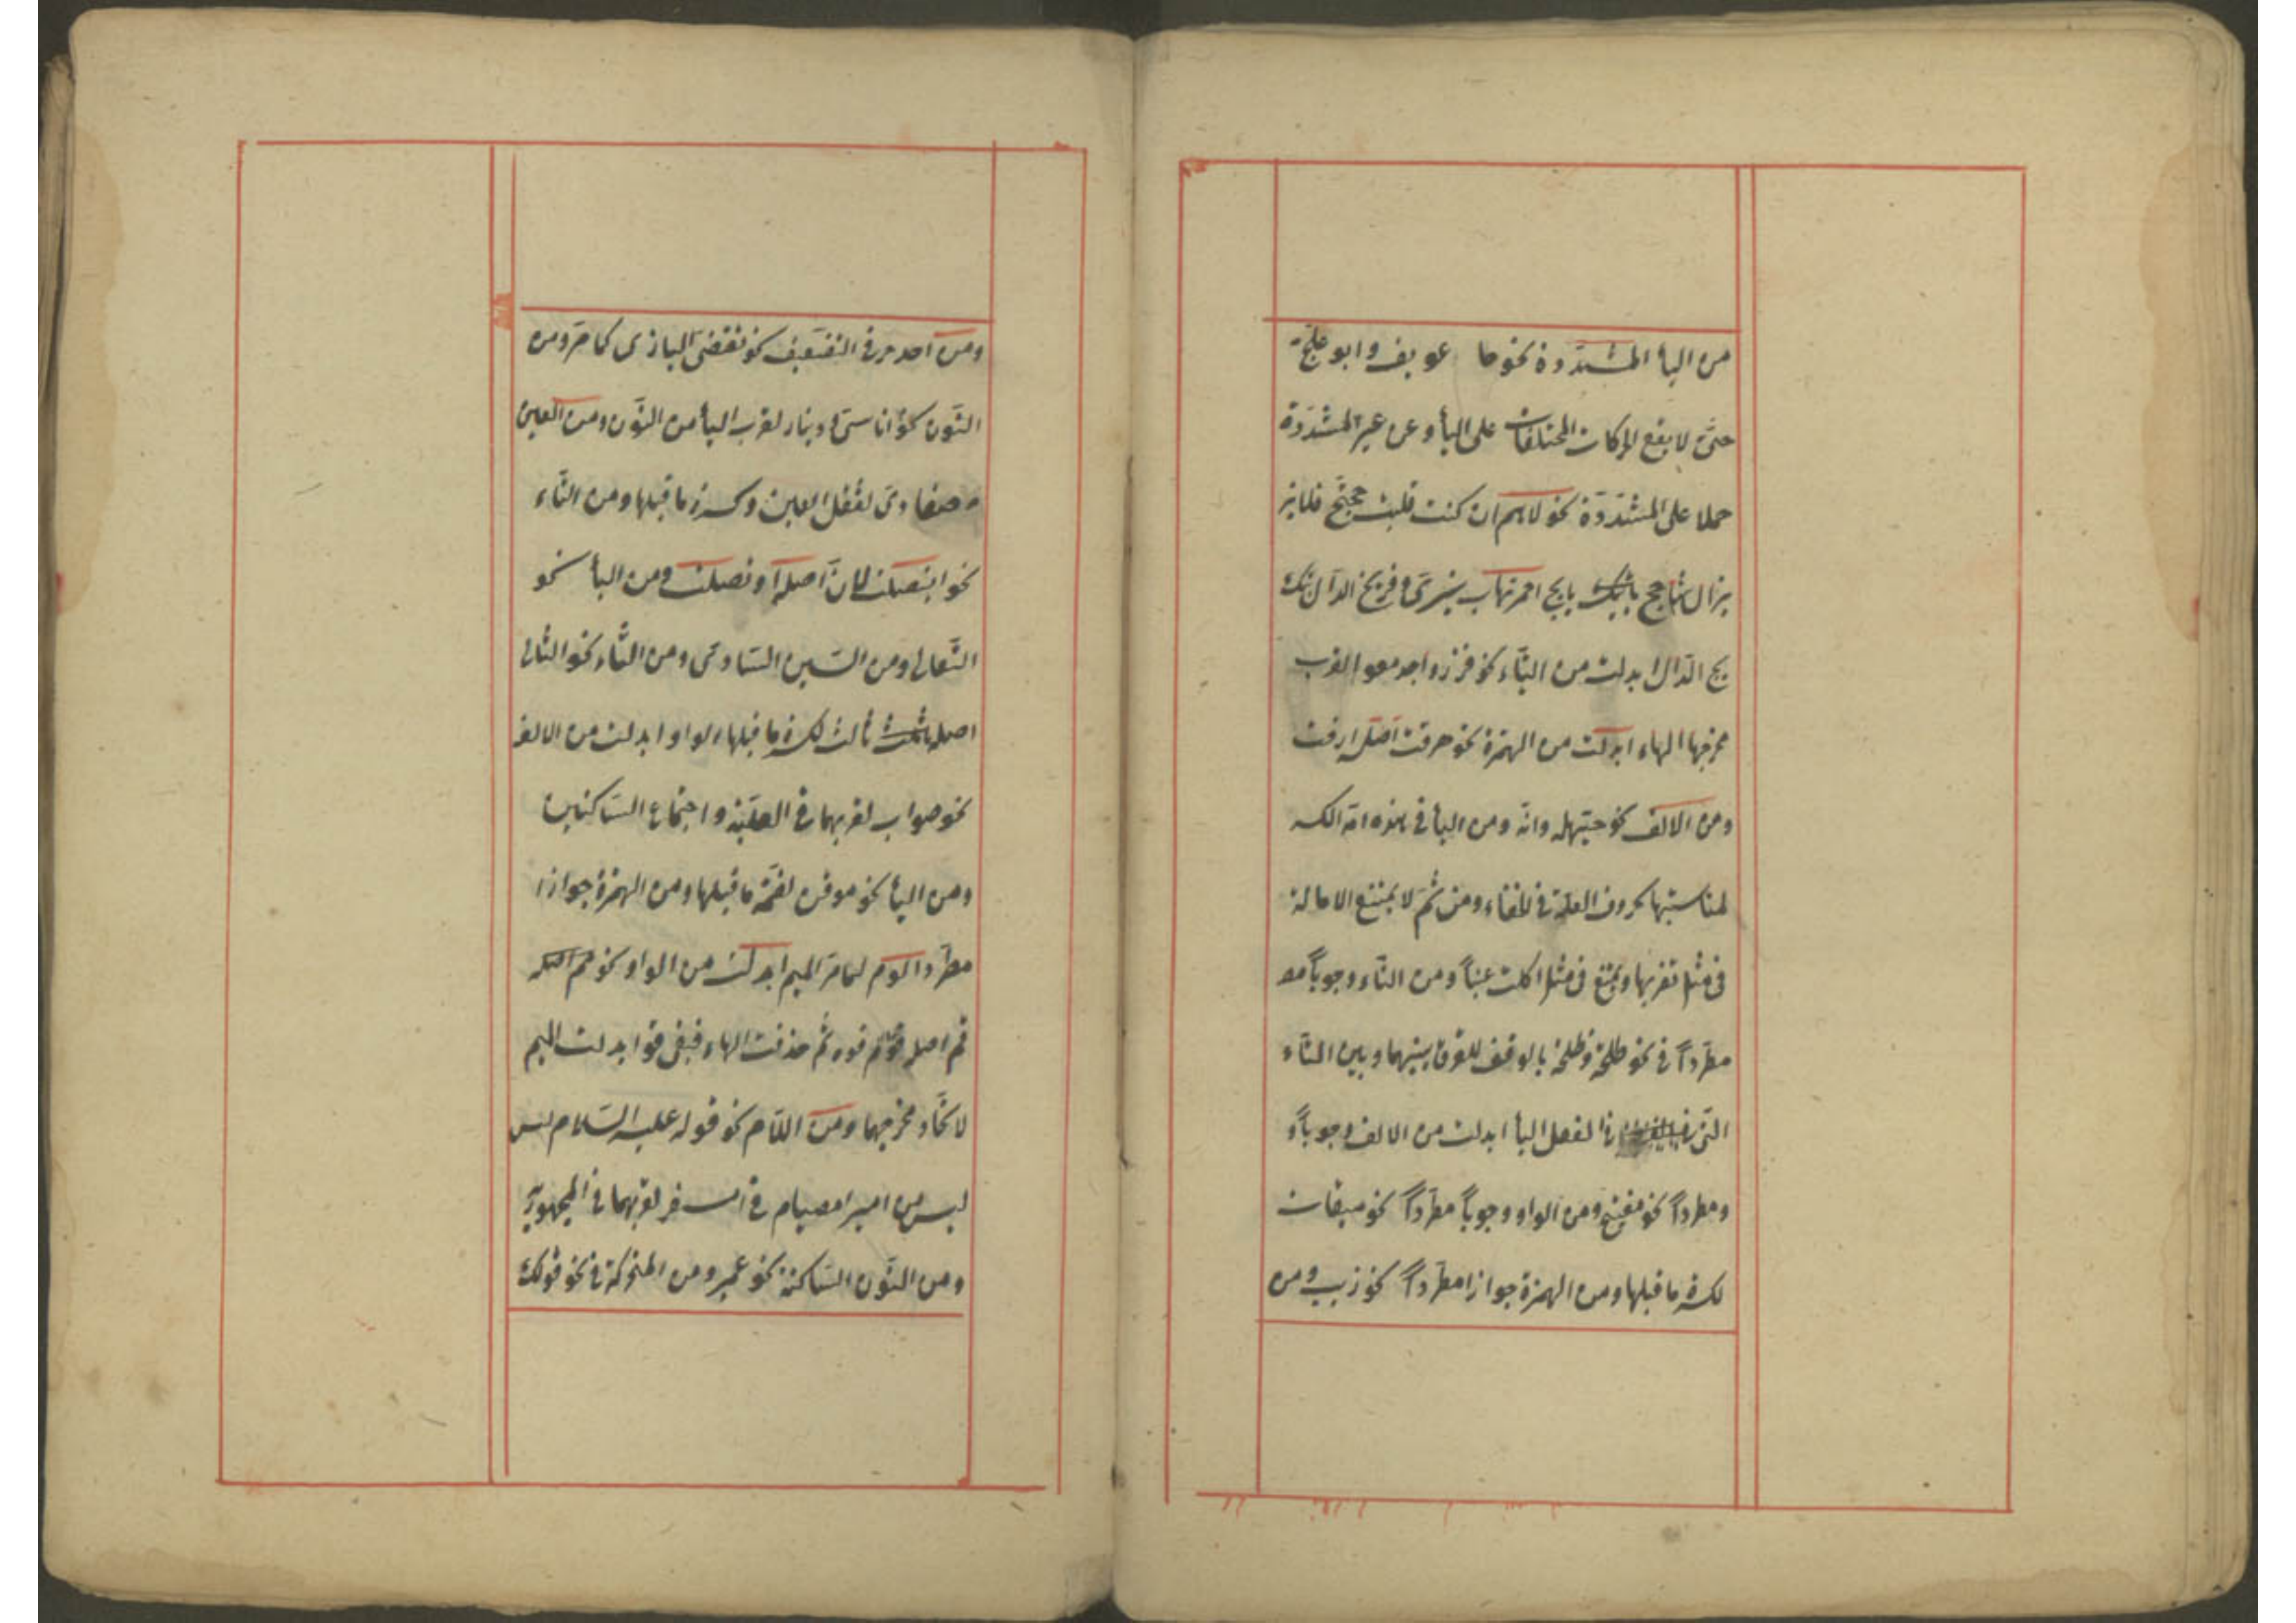 من اليأ المشدّدة نحو خا عويف وابو علجّ
حتّى لا يقع الحركات المختلفات على اليأ وعن غير المشدّدة
حملا على المشدّدة نحو لاهم ان كنت قبلت حجتج فلا يز
يزال شاحج يأتيك بج احمر نهاب ينزى وفرتج الدال
بج الدّال ابدلت من التّاء نحو فزد واجدمعوا لقرب
مخرجها الهاء ابدلت من الهمزة نحو هرقت اصله ارقت
ومن الالف نحو حيّهله وانّه ومن اليأ فى هذه امة الله
لمناسبتها بحروف العلّة فى الخفاء ومن ثمّ لا يمتنع الامالة
فى مثل تضربها ويمتنع فى مثل اكلت عنباً ومن التّاء وجوباً مط
مطّرداً فى نحو طلحة وظلحة بالوقف للفرق بينهما وبين التّاء
التى فى الفعل اليأ ابدلت من الالف وجوباً و
ومطرداً نحو مفيتيح ومن الواو وجوباً مطّرداً نحو ميقات
لكسرة ما قبلها ومن الهمزة جوازا مطّرداً نحو ذيب ومن
ومن احد حرفى التضعيف نحو تقضّى البازى كما مرّ ومن
النّون نحو اناسىّ ودينار لقرب اليأ من النّون ومن العين
ضفادى لثقل العين وكسرة ما قبلها ومن التّاء
نحو ايتصلت لانّ اصله اوتصلت ومن البأ نحو
الثّعالى ومن السّين السّادى ومن الثّاء نحو الثّالى
اصله ثالث لكسرة ما قبلها الواو ابدلت من الالف
نحو ضوارب لقربهما فى العلّيّة واجتماع السّاكنين
ومن اليأ نحو موقن لضمّة ما قبلها ومن الهمزة جوازا
مطّردا لوم لما مرّ الميم ابدلت من الواو نحو فم اصله
فم اصله فوه ثمّ حذفت الهاء فبقى فو ابدلت الميم
لاتّحاد مخرجهما ومن اللّام نحو قوله عليه السّلام ليس
ليس من امبر امصيام فى امسفر لقربهما فى المجهوريّة
ومن النّون السّاكنة نحو عمبر ومن المتحركة فى نحو قولك